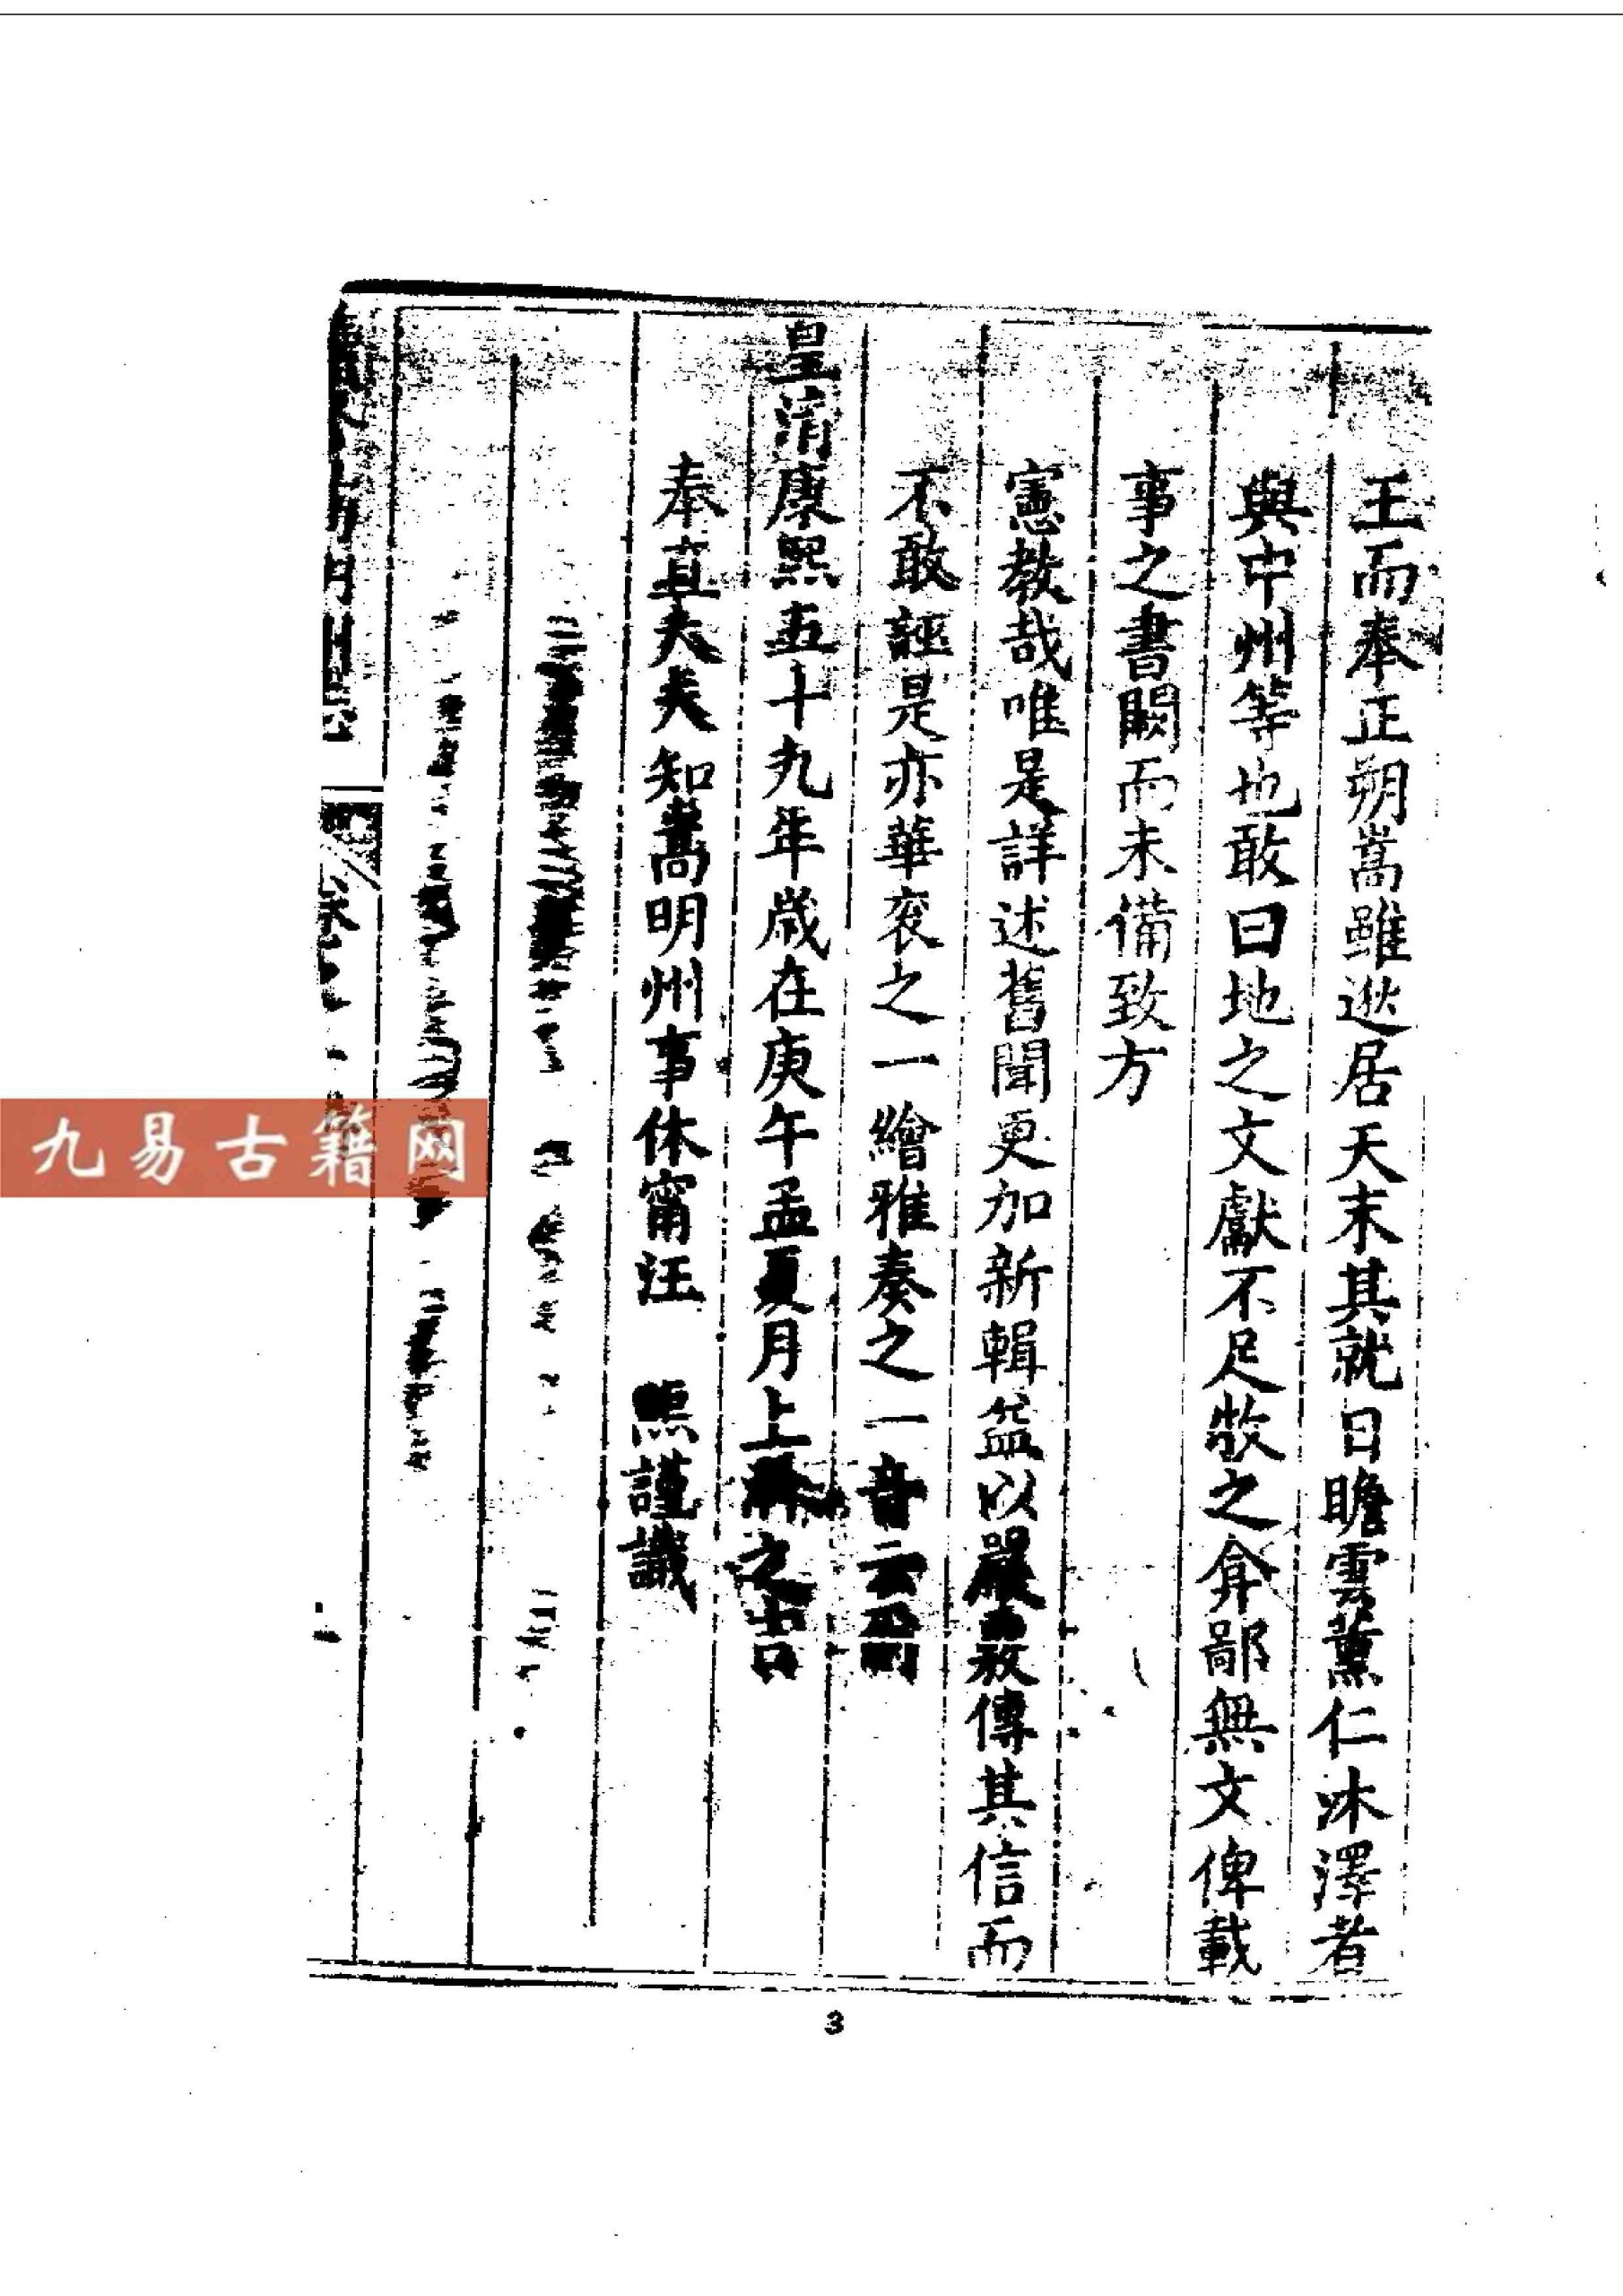 王而奉正朔嵩雖逖居天末其就日瞻雲薰仁沐澤者
與中州等也敢曰地之文獻不足牧之弇鄙無文俾載
事之書闕而未備致方
憲教哉唯是詳述舊聞更加新輯益以嚴敷傳其信而
不敢誣是亦華袞之一繪雅奏之一音云爾
皇清康熙五十九年歲在庚午孟夏月上澣之吉
奉直大夫知嵩明州事休甯汪 熙謹識
嵩明州志
卷之
九易古籍网
3